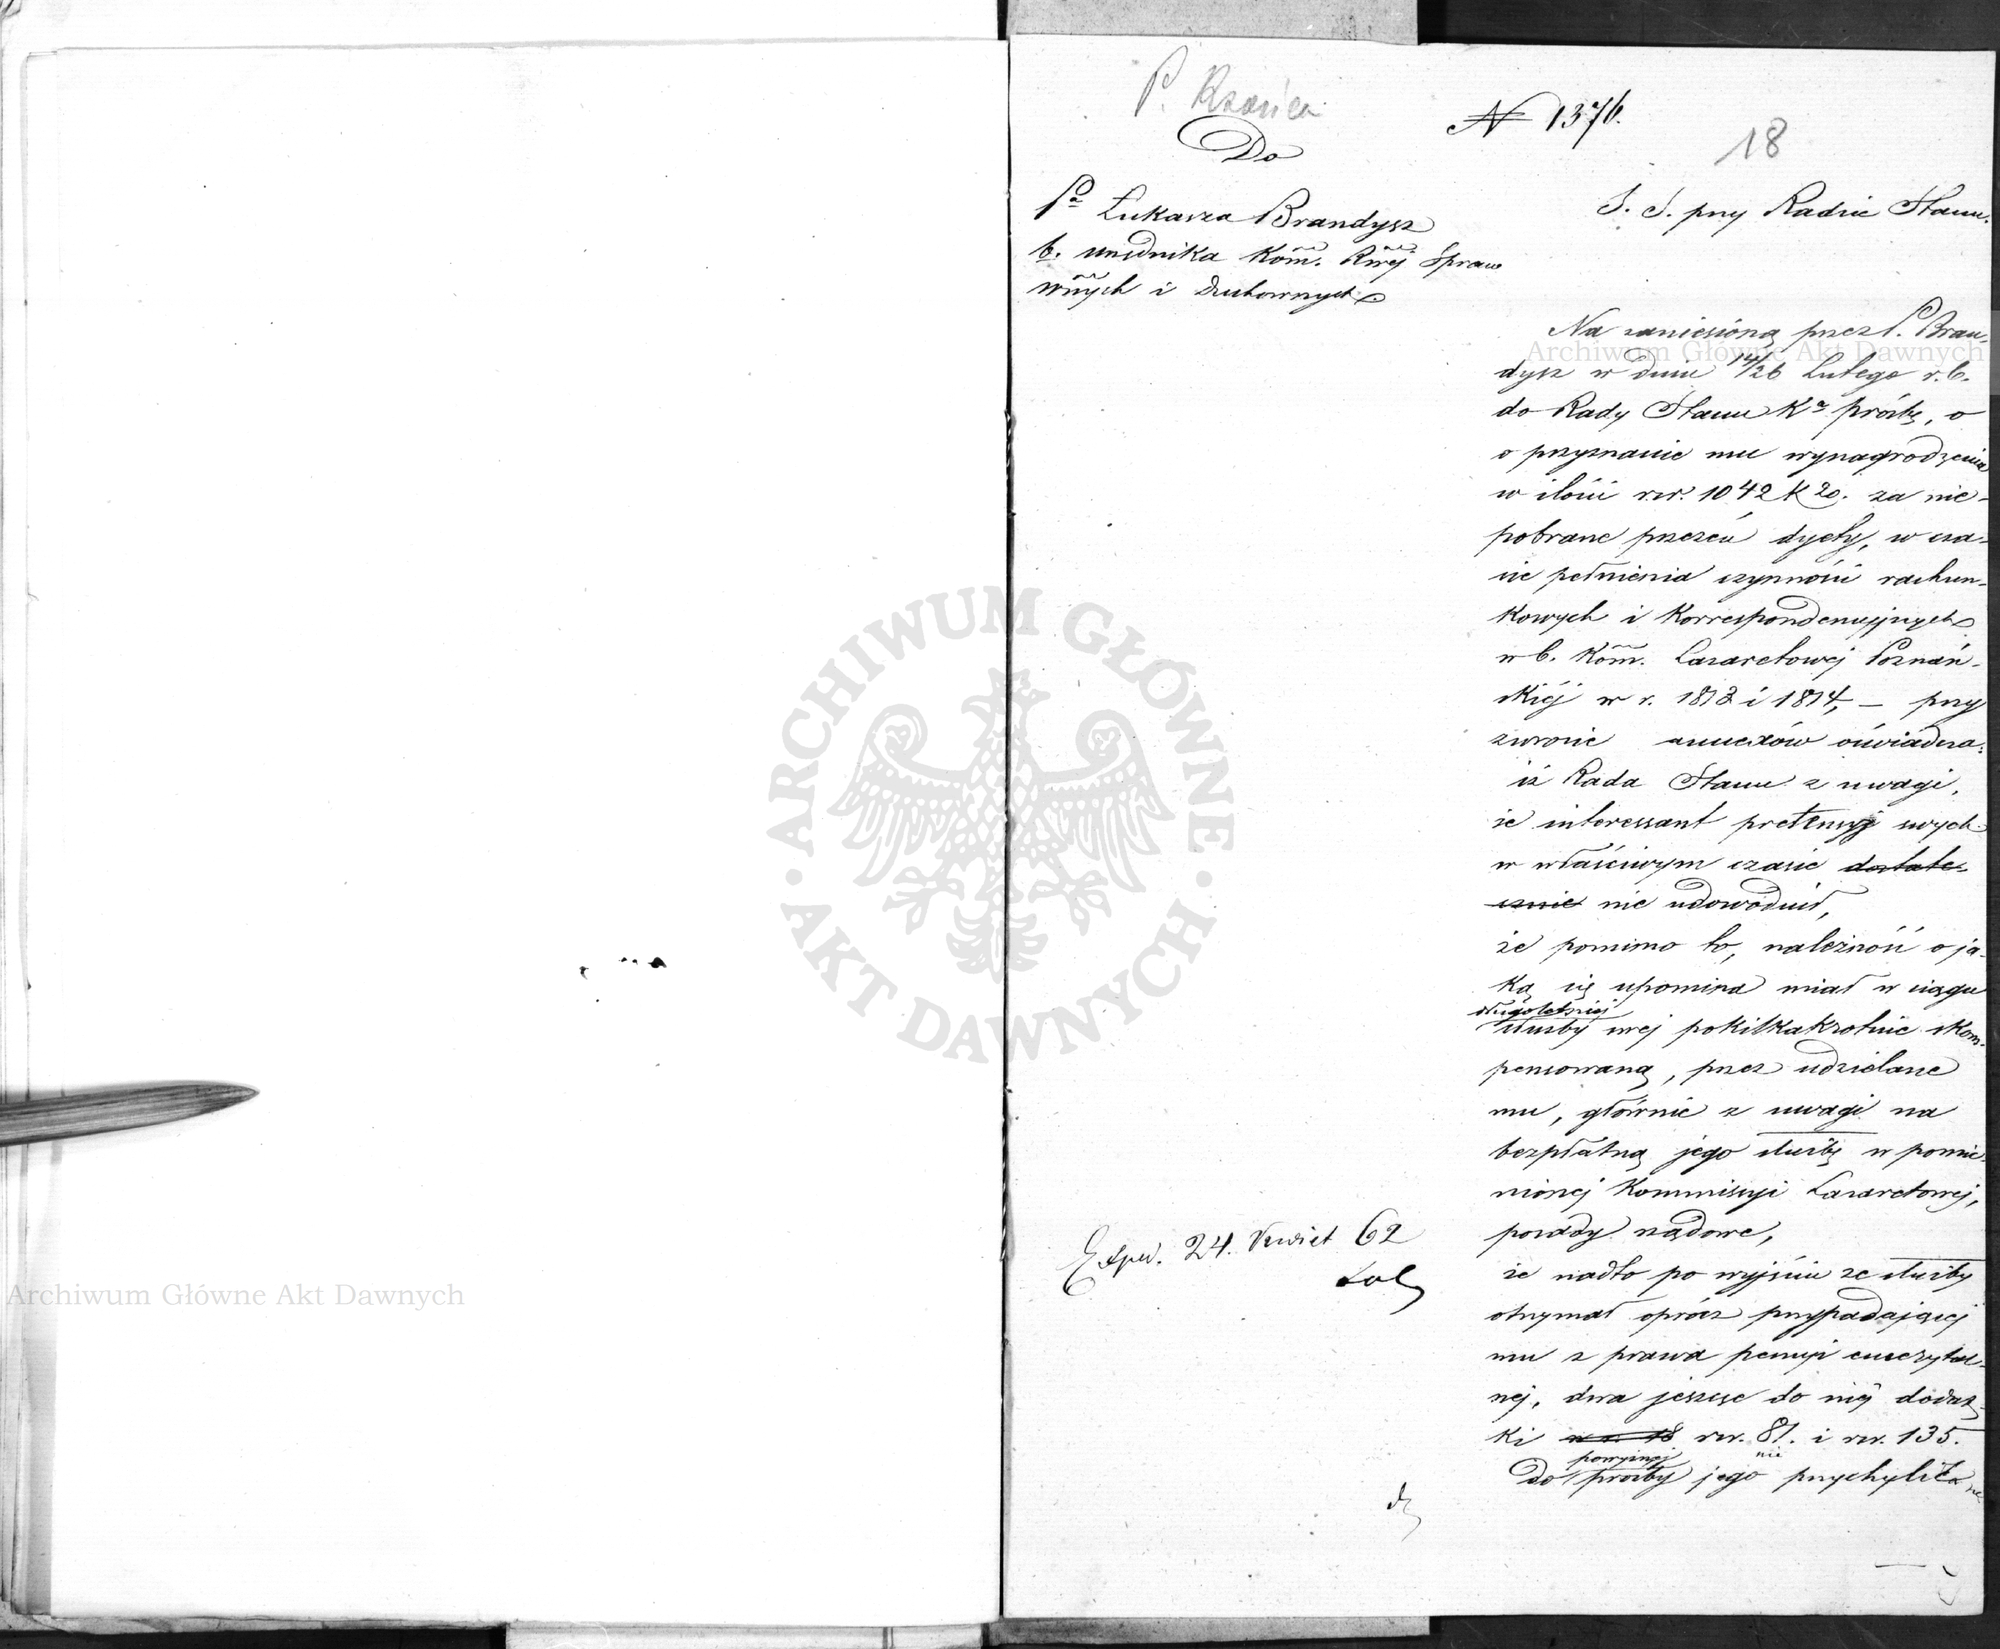 P. Rzański
Do
№ 1376.
18
Pa Łukasza Brandysz
b. urzędnika Kom. Rwej Spraw
Wnych i Duchownych
S. S. przy Radzie Stanu.
Na zaniesioną przez P. Bran-
dysz w dniu 14/26 Lutego r.b.
do Rady Stanu Ka prośbę, o
o przyznanie mu wynagrodzenia
w ilości rsr. 1042 k 20. za nie-
pobrane przezeń dyety, w cza-
sie pełnienia czynności rachun-
kowych i korrespondencyjnych
w b. Kom. Lazaretowej Poznań-
skiéj w r. 1813 i 1814, – przy
zwrocie annexów oświadcza:
iż Rada Stanu z uwagi,
że interessant pretensyj swych
w właściwym czasie dostate-
cznie nie udowodnił,
że pomimo to, należność o ja-
ką się upomina miał w ciągu
długoletniej
służby swej pokilkakrotnie skom-
pensowaną, przez udzielane
mu, głównie z uwagi na
bezpłatną jego służbę w pomie-
nionej Kommissyi Lazaretowej,
posady rządowe,
że nadto po wyjściu ze służby
otrzymał oprócz przypadającej
mu z prawa pensyi emerytal-
nej, dwa jeszcze do niéj dodat-
ki w r. 18 rsr. 81. i rsr. 135.
powyższej
nie
Do prośby jego przychyliła się
Exped. 24. Kwiet 62
Archiwum Główne Akt Dawnych
Archiwum Główne Akt Dawnych
ARCHIWUM GŁÓWNE AKT DAWNYCH